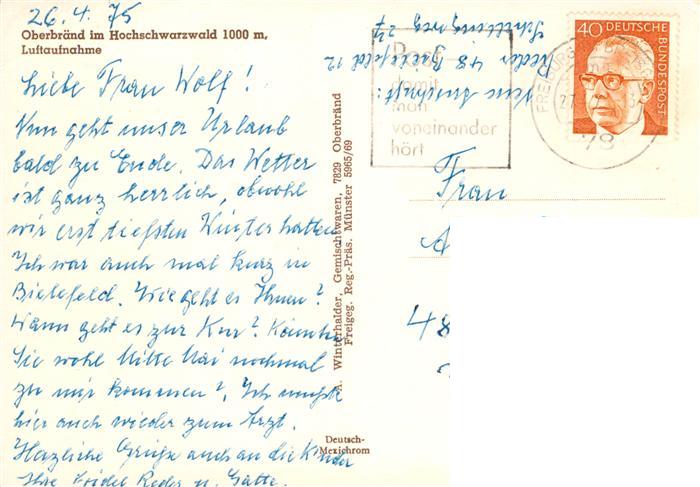 26.4.75
Oberbränd im Hochschwarzwald 1000 m,
Luftaufnahme
Liebe Frau Wolf!
Nun geht unser Urlaub
bald zu Ende. Das Wetter
ist ganz herrlich, obwohl
wir erst tiefsten Winter hatten
Ich war auch mal kurz in
Bielefeld. Wie geht es Ihnen?
Wann geht es zur Kur? Könnten
Sie wohl Mitte Mai nochmal
zu mir kommen? Ich mußte
hier auch wieder zum Arzt.
Herzliche Grüße auch an die Kinder
Ihre Friedel Reder u. Gatte.
A. Winterhalder, Gemischtwaren, 7829 Oberbränd
Freigeg. Reg.-Präs. Münster 5965/69
Deutsch-
Mexichrom
Neue Anschrift:
Reder 48 Bielefeld 12
27
Post
damit
man
voneinander
hört
FREIBURG
27.
78
40 DEUTSCHE
BUNDESPOST
Frau
A
48